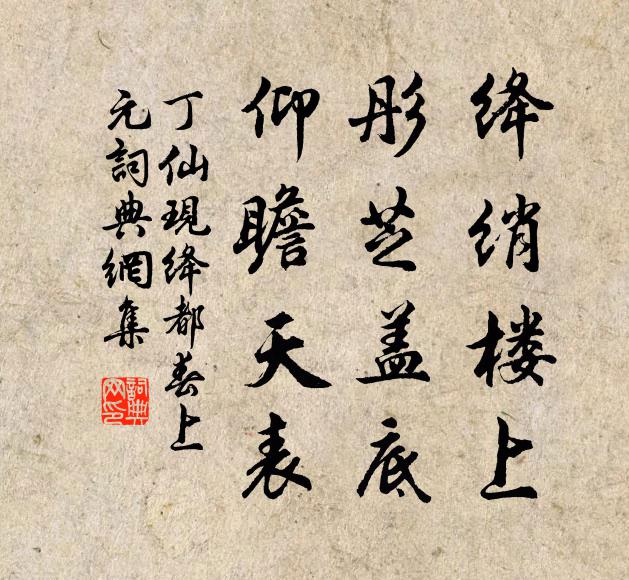 绛绡楼上
彤芝盖底
仰瞻天表
丁仙現绛都春上
元詞典網集
詞典网印